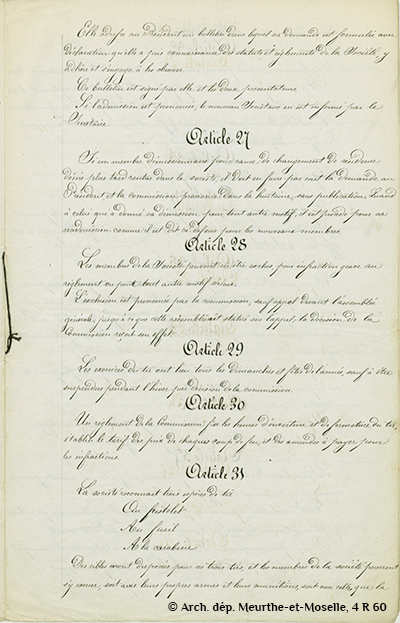 Elle adresse au Président un bulletin dans lequel sa demande est formulée avec
déclaration qu'elle a pris connaissance des statuts et règlements de la Société, y
adhère et s'engage à les observer.
Ce bulletin est signé par elle et les deux présentateurs.
Si l'admission est prononcée, le nouveau Sociétaire en est informé par le
Secrétaire.
Article 27
Si un membre démissionnaire pour cause de changement de résidence
désire plus tard rentrer dans la société, il doit en faire par écrit la demande au
Président, et la commission prononce dans la huitaine, sans publication. Quand
à celui qui a donné sa démission pour tout autre motif, il est procédé pour sa
réadmission comme il est dit ci-dessus pour les nouveaux membres.
Article 28
Les membres de la Société pourront en être exclus, pour infraction grave au
règlement ou pour tout autre motif sérieux.
L'exclusion est prononcée par la commission, sauf appel devant l'assemblée
générale; jusqu'à ce que cette assemblée ait statué sur l'appel, la décision de la
Commission reçoit son effet.
Article 29
Les exercices du tir ont lieu tous les dimanches et fêtes de l'année, sauf à être
suspendus pendant l'hiver par décision de la commission.
Article 30
Un règlement de la Commission fixe les heures d'ouverture et de fermeture du tir,
établit le tarif des prix de chaque coup de feu, et des amendes à payer pour
les infractions.
Article 31
La société reconnait trois espèces de tir
Au pistolet
Au fusil
A la carabine
Des cibles seront disposées pour ces trois tirs, et les membres de la société pourront
s'y exercer, soit avec leurs propres armes et leurs munitions, soit avec celles que la
© Arch. dép. Meurthe-et-Moselle, 4 R 60